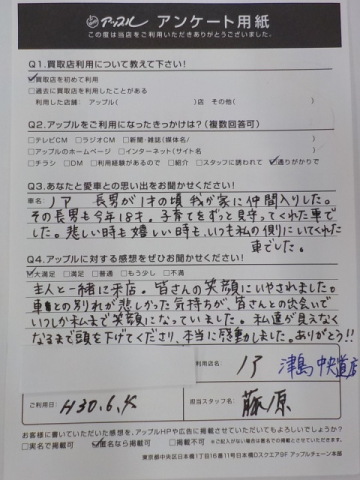 アップル アンケート用紙
この度は当店をご利用いただきありがとうございました。
Q1.買取店利用について教えて下さい!
☑買取店を初めて利用
□過去に買取店を利用したことがある
利用した店舗: アップル( )店 その他( )
Q2.アップルをご利用になったきっかけは?(複数回答可)
□テレビCM □ラジオCM □新聞・雑誌(媒体名/ )
□アップルのホームページ □インターネット(サイト名 )
□チラシ □DM □利用経験があるので □紹介 □スタッフに誘われて ☑通りがかりで
Q3.あなたと愛車との思い出をお聞かせください!
車名 ノア 長男が1才の頃 我が家に仲間入りした。
その長男も今年18才。子育てをずっと見守ってくれた車で
した。悲しい時も嬉しい時も、いつも私の側にいてくれた
車でした。
Q4.アップルに対する感想をぜひお聞かせください!
☑大満足 □満足 □普通 □もう少し □不満
主人と一緒に来店。皆さんの笑顔にいやされました。
車との別れが悲しかった気持ちが、皆さんとの出会いで
いつしか私まで笑顔になっていました。私達が見えなく
なるまで頭を下げてくださり、本当に感動しました。ありがとう!!
利用店名 ノア 津島中央道店
ご利用日 H30.6.
担当スタッフ名 藤原
お客様に書いていただいた感想を、アップルHPや広告に掲載させていただいてもよろしいでしょうか?
□実名で掲載可 ☑匿名なら掲載可 □掲載不可 ※ご記入がない場合は匿名での掲載とさせていただきます。
東京都中央区日本橋1丁目16番11号日本橋Dスクエア9F アップルチェーン本部